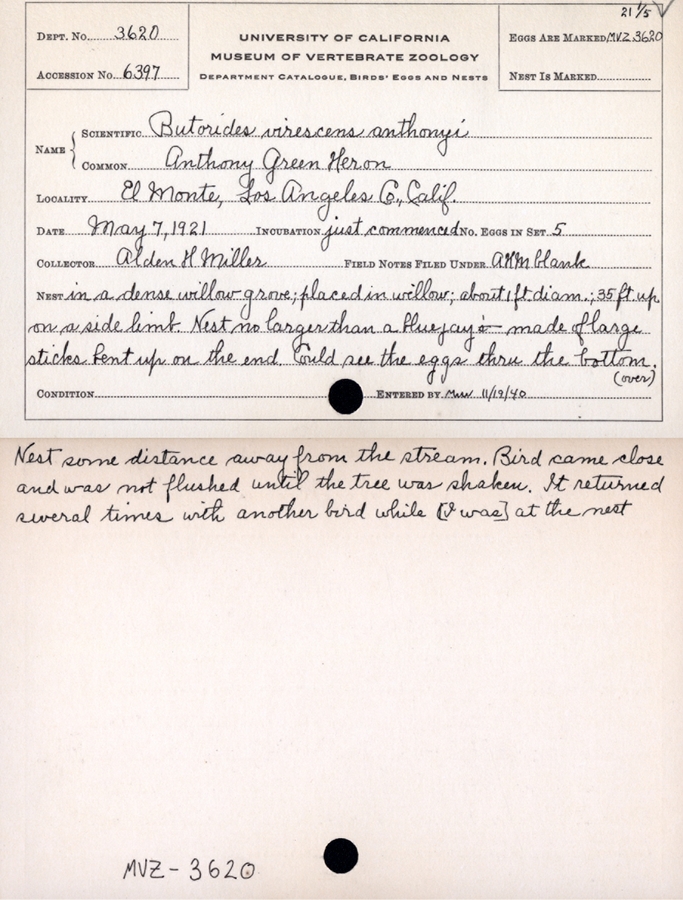 21 1/5 √
Dept. No. 3620
Accession No. 6397
UNIVERSITY OF CALIFORNIA
MUSEUM OF VERTEBRATE ZOOLOGY
Department Catalogue, Birds' Eggs and Nests
Eggs Are Marked MVZ 3620
Nest Is Marked
Name
Scientific Butorides virescens anthonyi
Common Anthony Green Heron
Locality El Monte, Los Angeles Co., Calif.
Date May 7, 1921 Incubation just commenced No. Eggs in Set 5
Collector Alden H Miller Field Notes Filed Under AHM blank
Nest in a dense willow grove; placed in willow; about 1 ft diam.; 35 ft. up
on a side limb. Nest no larger than a bluejay's made of large
sticks bent up on the end. Could see the eggs thru the bottom.
(over)
Condition Entered by 11/19/40
Nest some distance away from the stream. Bird came close
and was not flushed until the tree was shaken. It returned
several times with another bird while [I was] at the nest
MVZ-3620